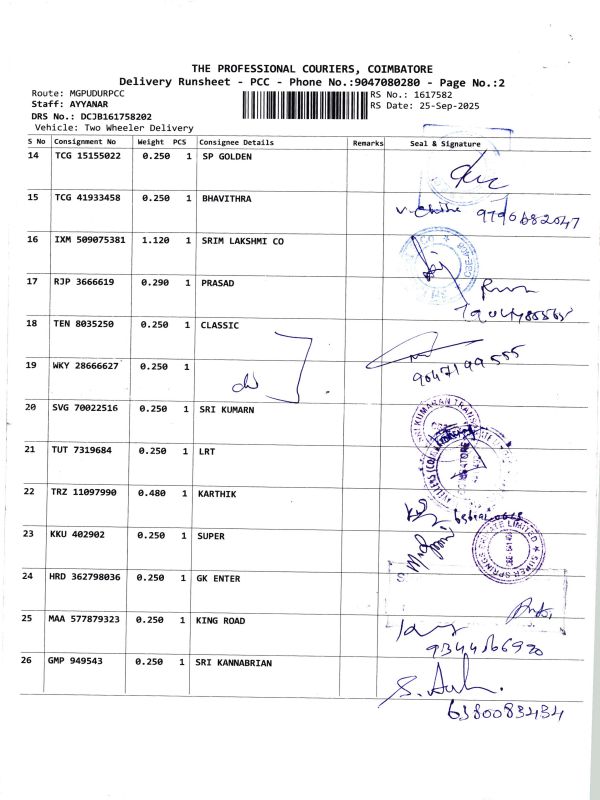 THE PROFESSIONAL COURIERS, COIMBATORE
Delivery Runsheet - PCC - Phone No.:9047080280 - Page No.:2
Route: MGPUDURPCC
RS No.: 1617582
Staff: AYYANAR
RS Date: 25-Sep-2025
DRS No.: DCJB161758202
Vehicle: Two Wheeler Delivery
S No Consignment No Weight PCS Consignee Details Remarks Seal & Signature
14 TCG 15155022 0.250 1 SP GOLDEN
15 TCG 41933458 0.250 1 BHAVITHRA
9790682047
16 IXM 509075381 1.120 1 SRIM LAKSHMI CO
17 RJP 3666619 0.290 1 PRASAD
18 TEN 8035250 0.250 1 CLASSIC
19 WKY 28666627 0.250 1
9047199555
20 SVG 70022516 0.250 1 SRI KUMARN
SRI KUMARAN TRANS
21 TUT 7319684 0.250 1 LRT
22 TRZ 11097990 0.480 1 KARTHIK
23 KKU 402902 0.250 1 SUPER
SUPER SPRINGS PRIVATE LIMITED
24 HRD 362798036 1 0.250 1 GK ENTER
25 MAA 577879323 0.250 1 KING ROAD
9344566920
26 GMP 949543 0.250 1 SRI KANNABRIAN
6380083434